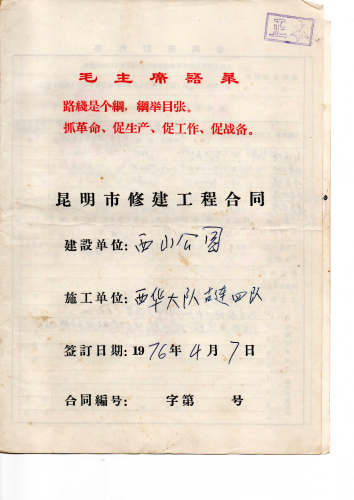 正本
毛主席語录
路綫是个綱，綱举目张。
抓革命、促生产、促工作、促战备。
昆明市修建工程合同
建設单位：西山公园
施工单位：西华大队古莲四队
签訂日期：1976年4月7日
合同編号： 字第 号